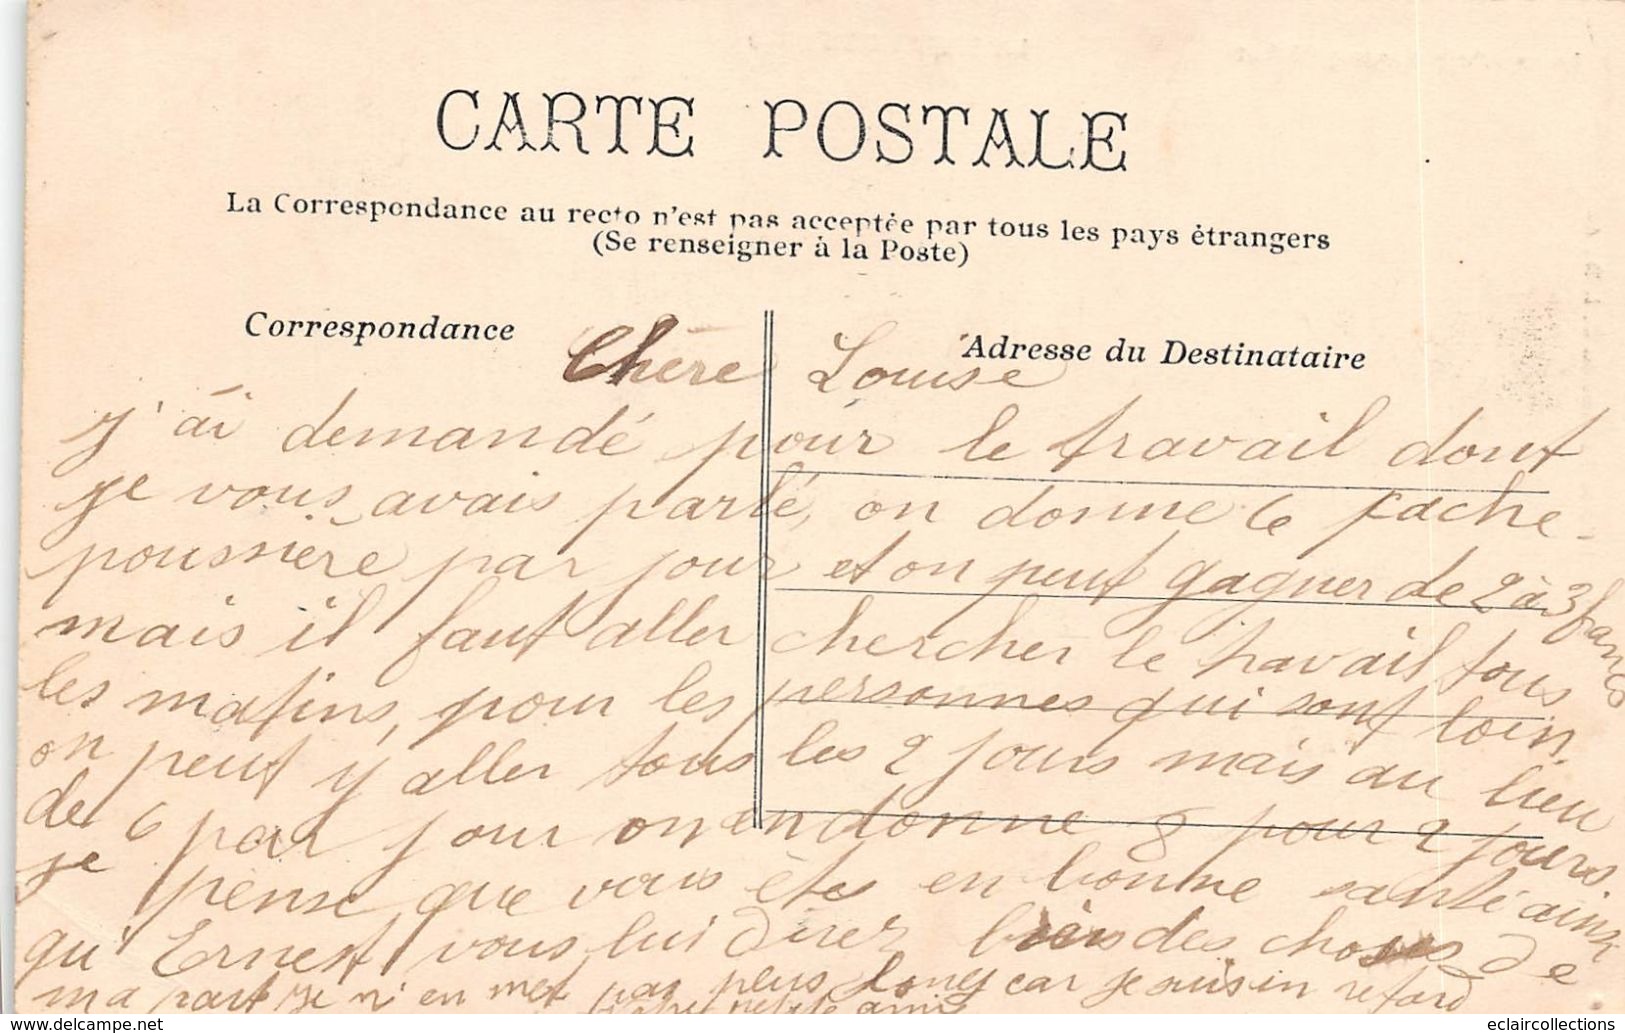 CARTE POSTALE
La Correspondance au recto n'est pas acceptée par tous les pays étrangers
(Se renseigner à la Poste)
Correspondance
Adresse du Destinataire
Chère Louise
j'ai demandé pour le travail dont
je vous avais parlé, on donne 6 cache-
poussière par jour et on peut gagner de 2 à 3 francs
mais il faut aller chercher le travail tous
les matins, pour les personnes qui sont loin
on peut y aller tous les 2 jours mais au lieu
de 6 par jour on en donne 8 pour 2 jours.
je pense que vous êtes en bonne santé ainsi
qu'Ernest, vous lui direz bien des choses de
ma part je n'en met pas plus long car je suis in retard
petite amie
eclaircollections